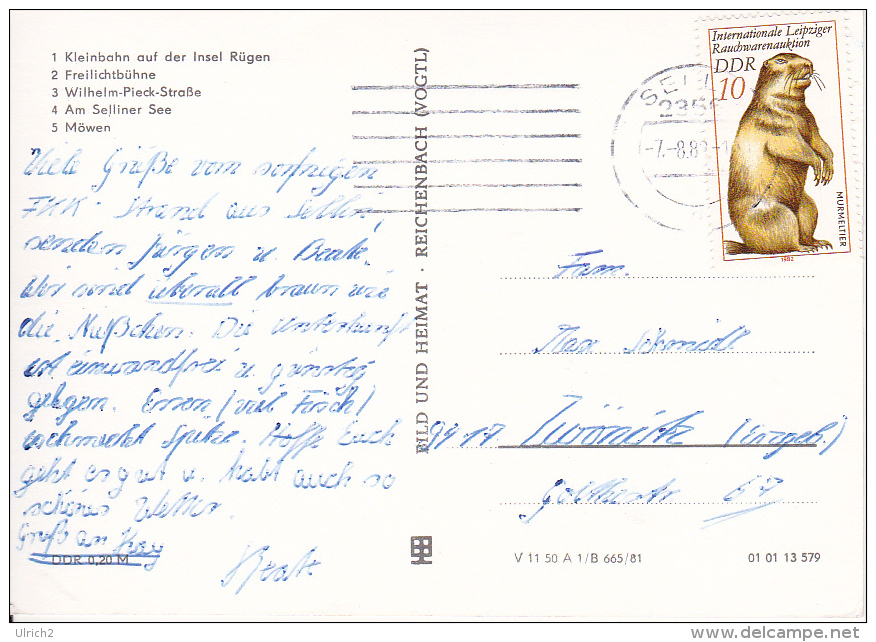 1 Kleinbahn auf der Insel Rügen
2 Freilichtbühne
3 Wilhelm-Pieck-Straße
4 Am Selliner See
5 Möwen
Viele Grüße vom sonnigen
FKK-Strand aus Sellin,
senden Jürgen u. Beate.
Wir sind überall braun wie
die Nüßchen. Die Unterkunft
ist einwandfrei u. günstig
gelegen. Essen (viel Fisch)
schmeckt Spitze. Hoffe Euch
geht es gut u. habt auch so
schönes Wetter.
Gruß an
Beate
DDR 0,20 M
BILD UND HEIMAT · REICHENBACH (VOGTL)
Internationale Leipziger
Rauchwarenauktion
DDR
10
MURMELTIER
1982
2356
-7.-8.8
Fam.
Max Schmidt
9417 Zwönitz (Erzgeb.)
67
V 11 50 A 1/B 665/81
01 01 13 579
Ulrich2
delcampe.net